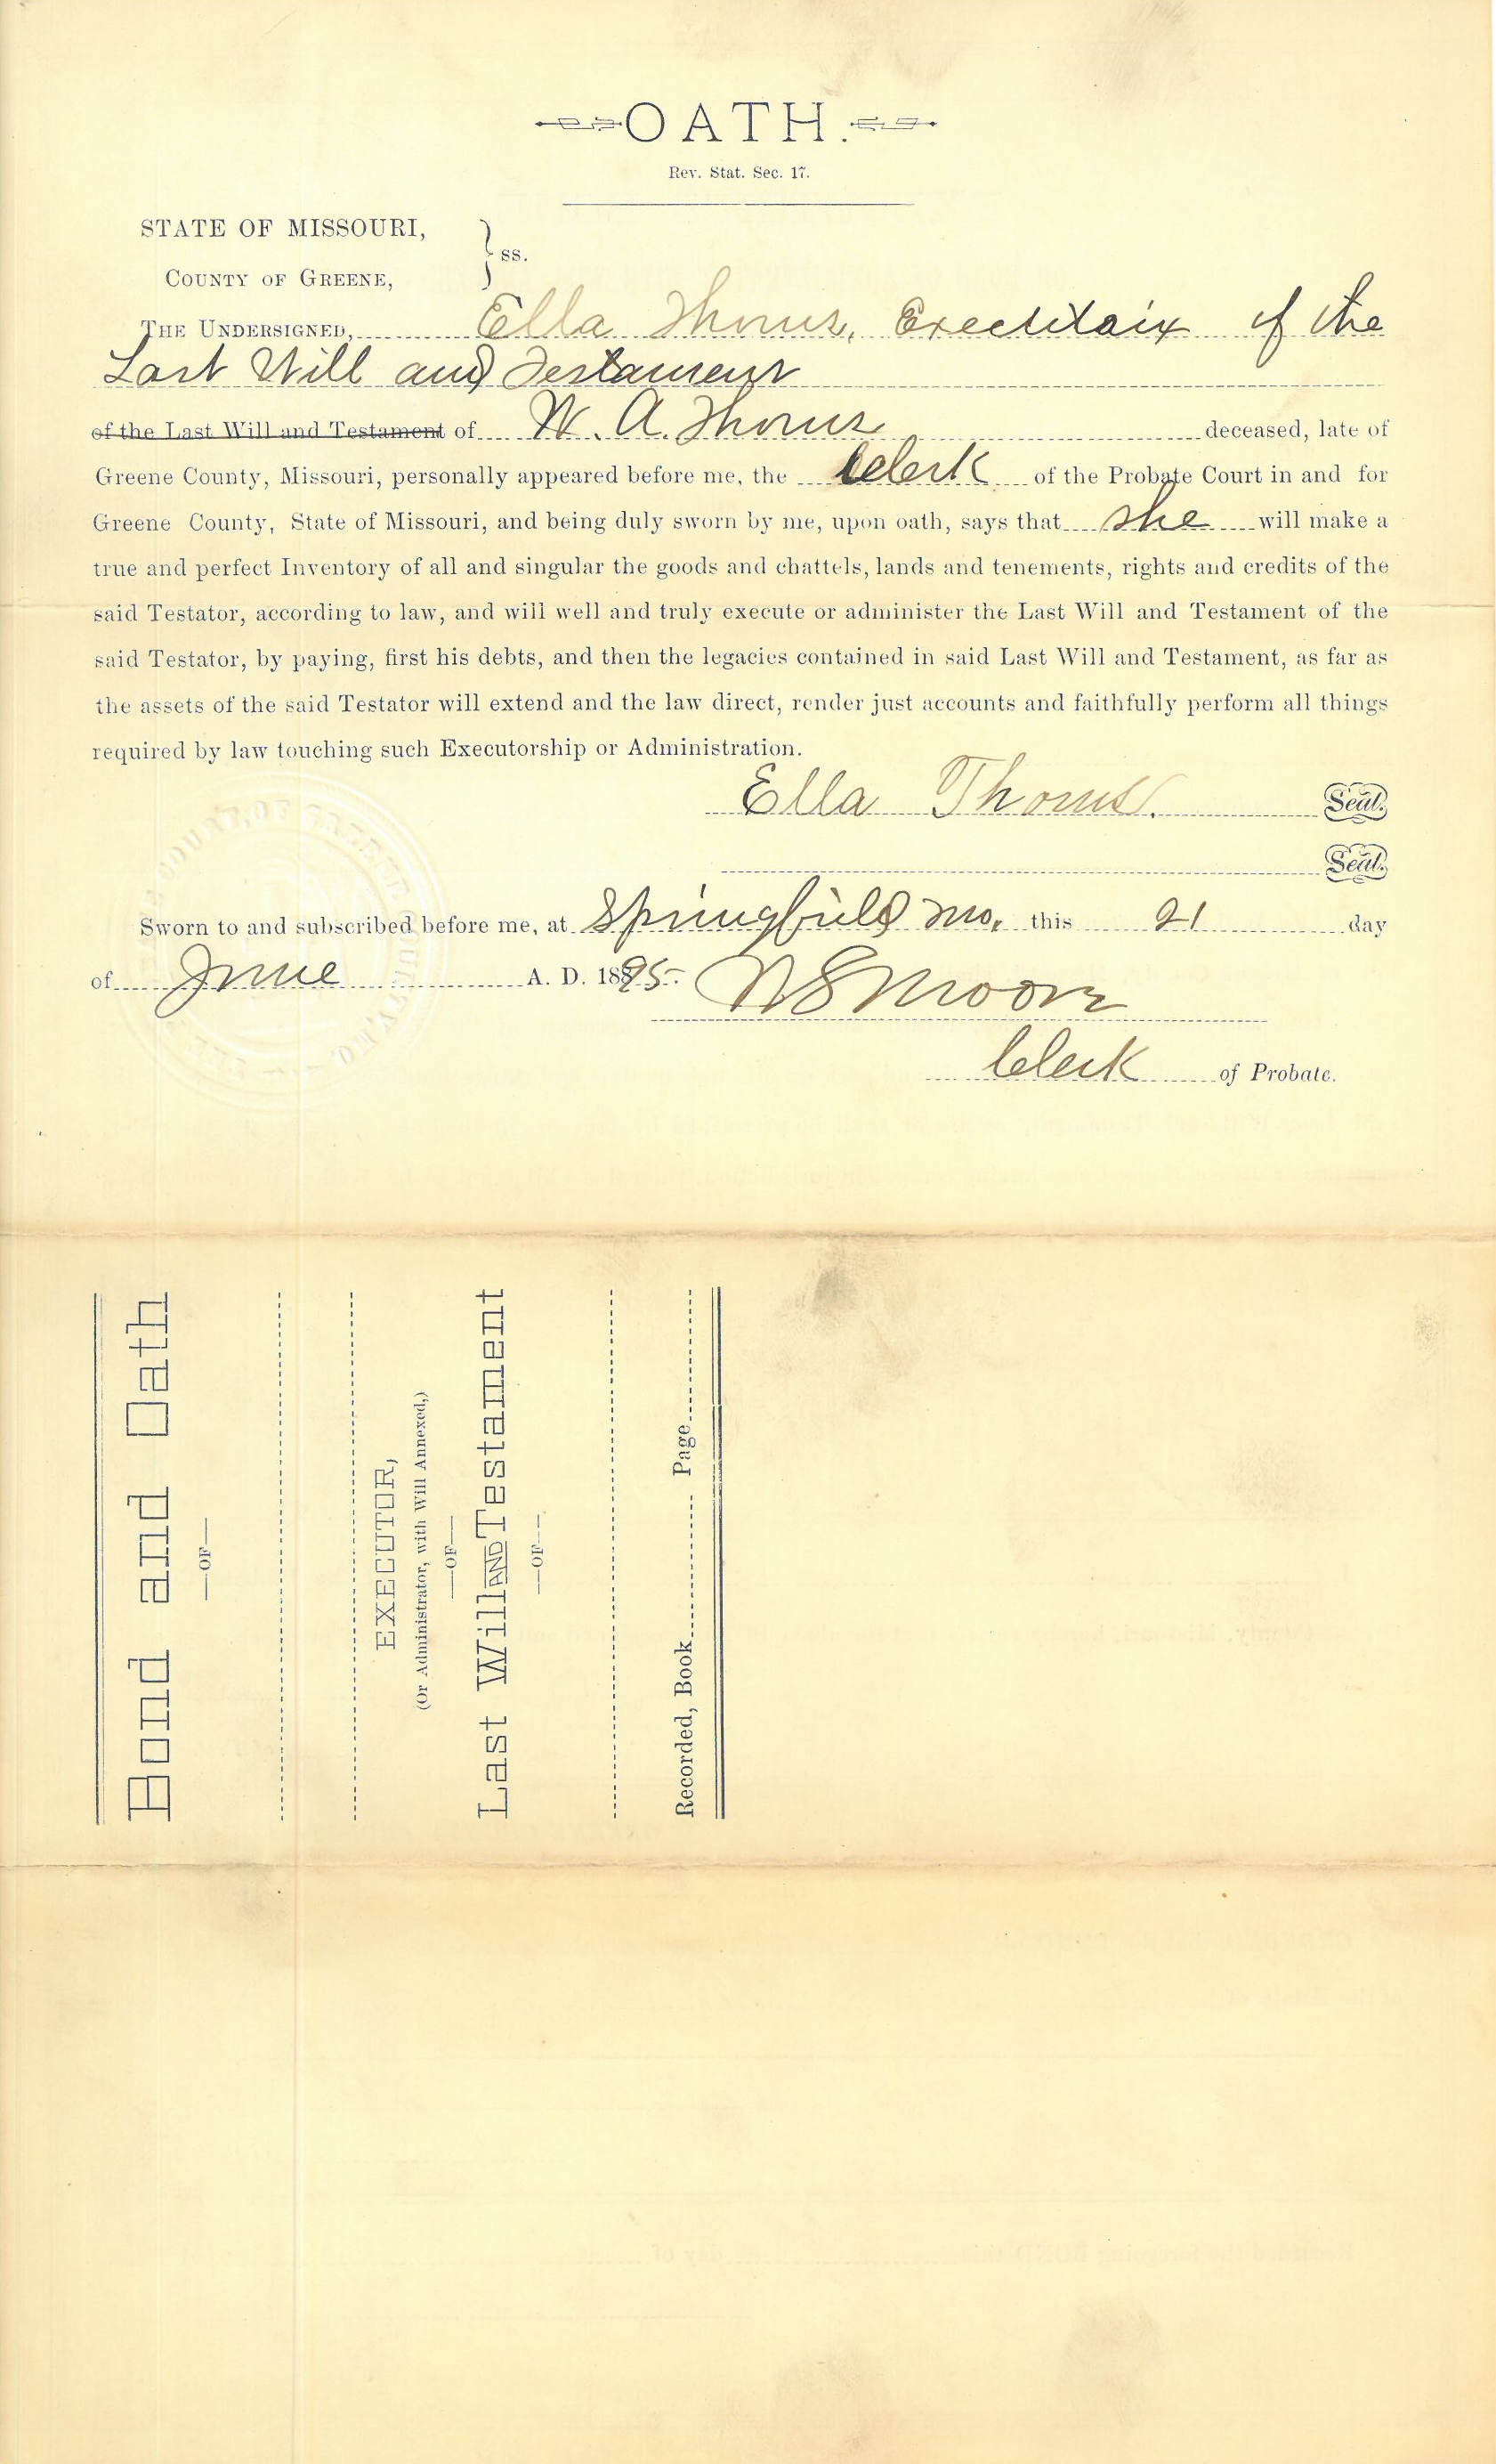 OATH.
Rev. Stat. Sec. 17.
STATE OF MISSOURI,
COUNTY OF GREENE, } ss.
THE UNDERSIGNED, Ella Thoms, Execcitaix of the
Last Will and Testament
of the Last Will and Testament of W. A. Thoms deceased, late of
Greene County, Missouri, personally appeared before me, the Clerk of the Probate Court in and for
Greene County, State of Missouri, and being duly sworn by me, upon oath, says that she will make a
true and perfect Inventory of all and singular the goods and chattels, lands and tenements, rights and credits of the
said Testator, according to law, and will well and truly execute or administer the Last Will and Testament of the
said Testator, by paying, first his debts, and then the legacies contained in said Last Will and Testament, as far as
the assets of the said Testator will extend and the law direct, render just accounts and faithfully perform all things
required by law touching such Executorship or Administration.
Ella Thoms. Seal.
Seal.
Sworn to and subscribed before me, at Springfield Mo, this 21 day
of June A. D. 1895- W S Moore
Clerk of Probate.
Bond and Oath
—OF—
EXECUTOR,
(Or Administrator, with Will Annexed,)
—OF—
Last Will AND Testament
—OF—
Recorded, Book Page